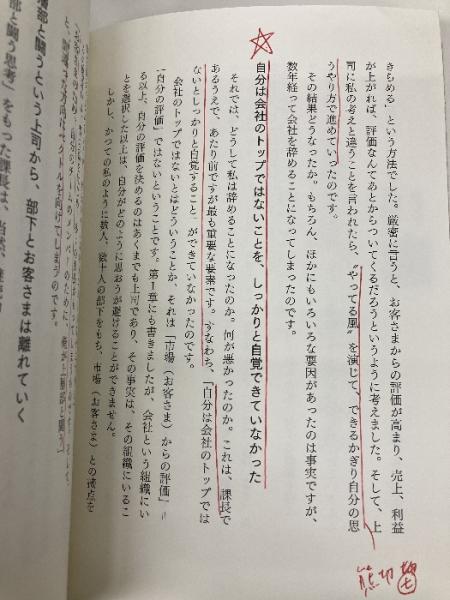 きもめる'という方法でした。厳密に言うと、お客さまからの評価が高まり、売上、利益
が上がれば、評価なんてあとからついてくるだろうというように考えました。そして、上
司に私の考えと違うことを言われたら、"やってる風"を演じて、できるかぎり自分の思
うやり方で進めていったのです。
その結果どうなったか。もちろん、ほかにもいろいろな要因があったのは事実ですが、
数年経って会社を辞めることになってしまったのです。
自分は会社のトップではないことを、しっかりと自覚できていなかった
それでは、どうして私は辞めることになったのか。何が悪かったのか。これは、課長で
あるうえで、あたり前ですが最も重要な要素です。すなわち、「自分は会社のトップでは
ないとしっかりと自覚すること」ができていなかったのです。
会社のトップではないとはどういうことか、それは「市場(お客さま)からの評価」=
「自分の評価」ではないということです。第1章にも書きましたが、会社という組織にい
る以上、自分の評価を決めるのはあくまでも上司であり、その事実は、その組織にいるこ
とを選択した以上は、自分がどのように思おうが避けることができません。
しかし、かつての私のように数人、数十人の部下をもち、市場(お客さま)との接点を
部と闘うという上司から、部下とお客さまは離れていく
部と闘う思考」をもった課長は、当然、